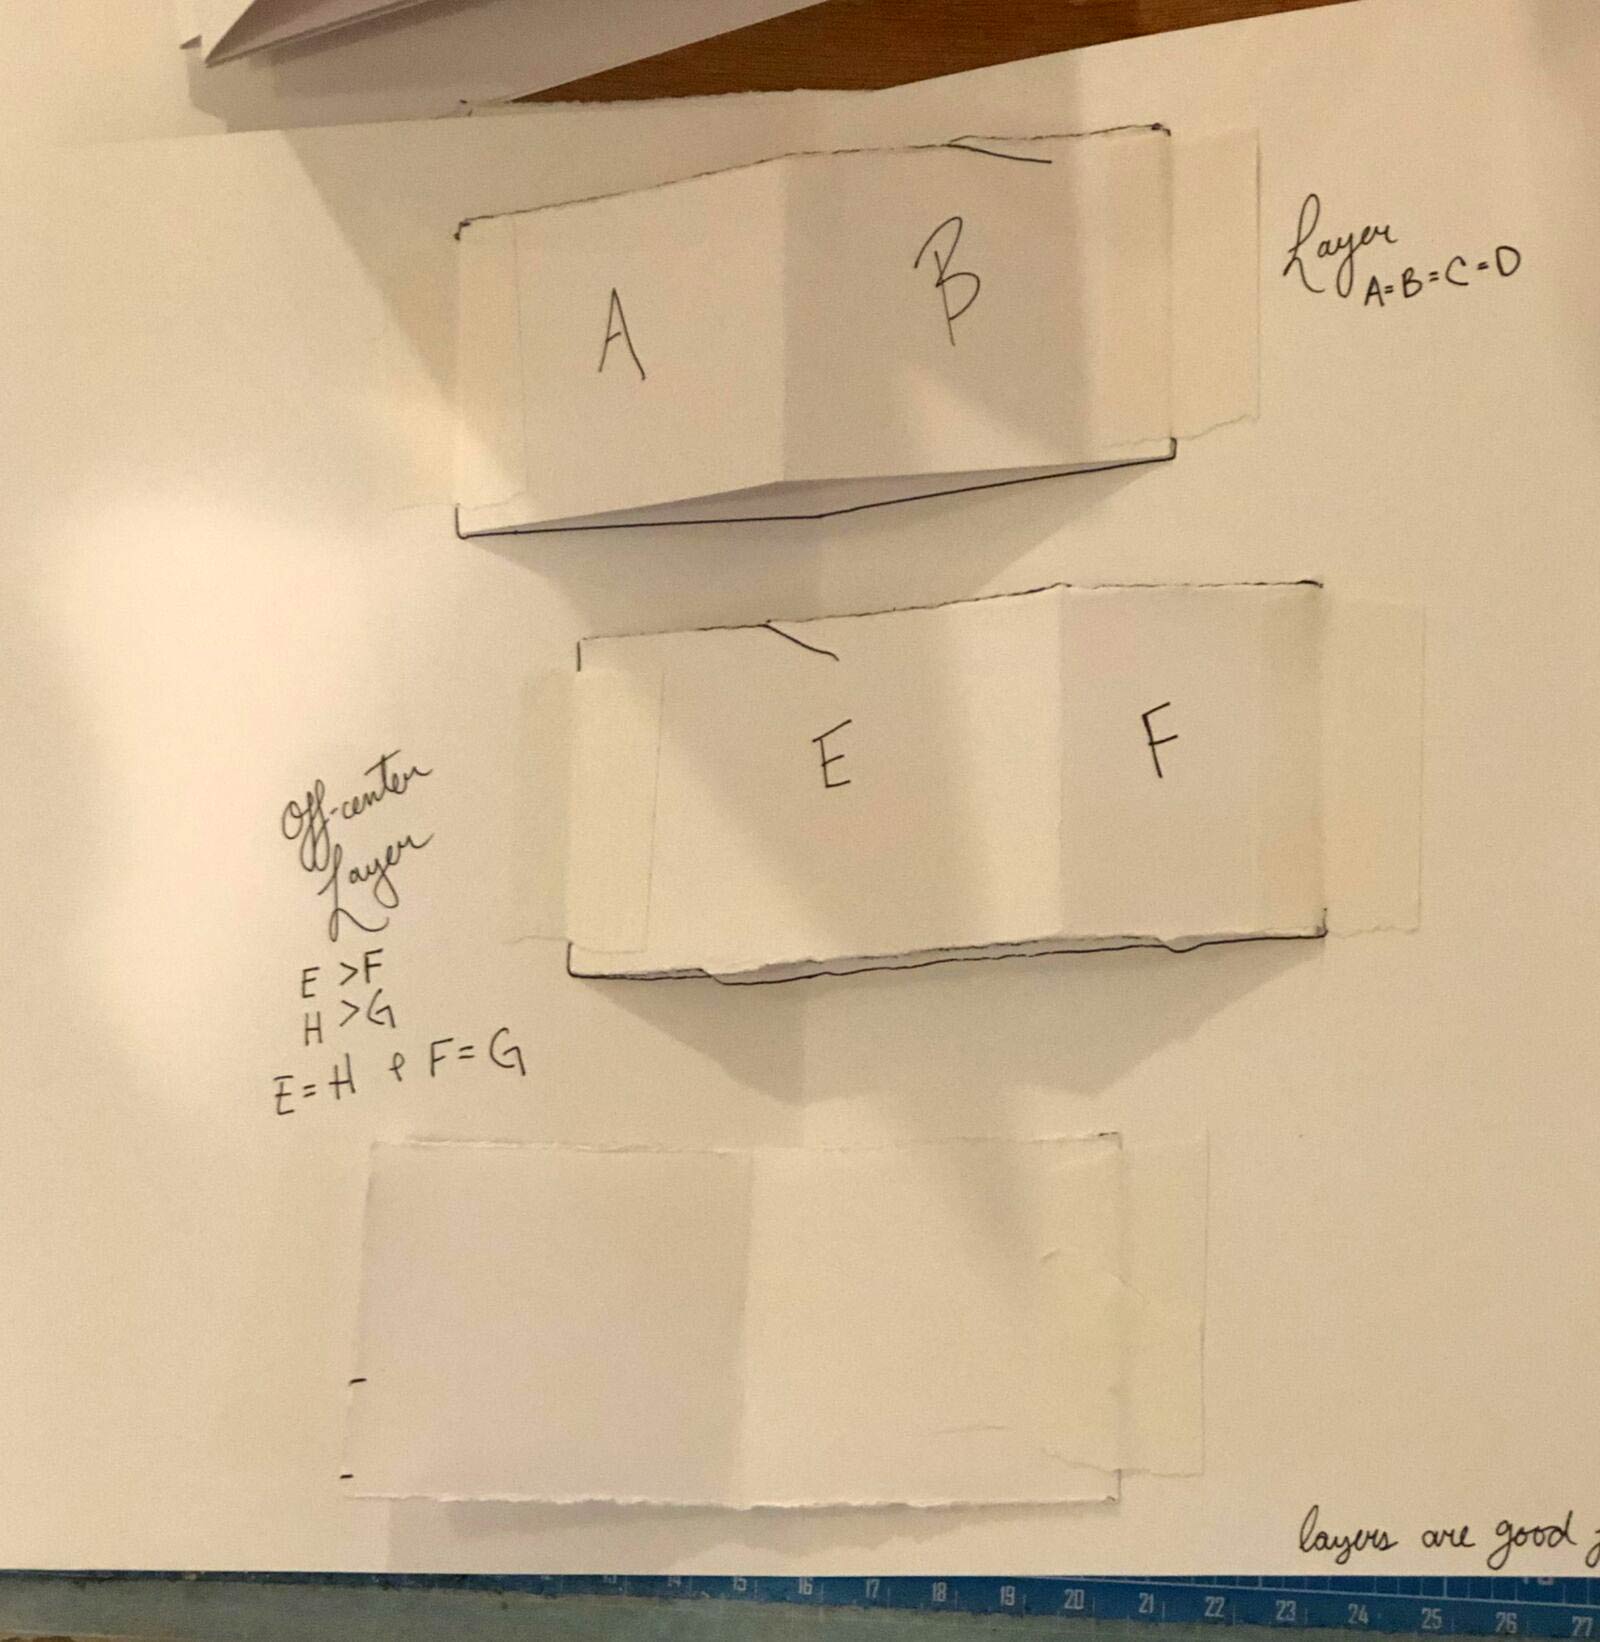 A
B
Layer
A=B=C=D
E
F
Off-center
Layer
E >F
H >G
E=H & F=G
layers are good
15 16 17 18 19 20 21 22 23 24 25 26 27